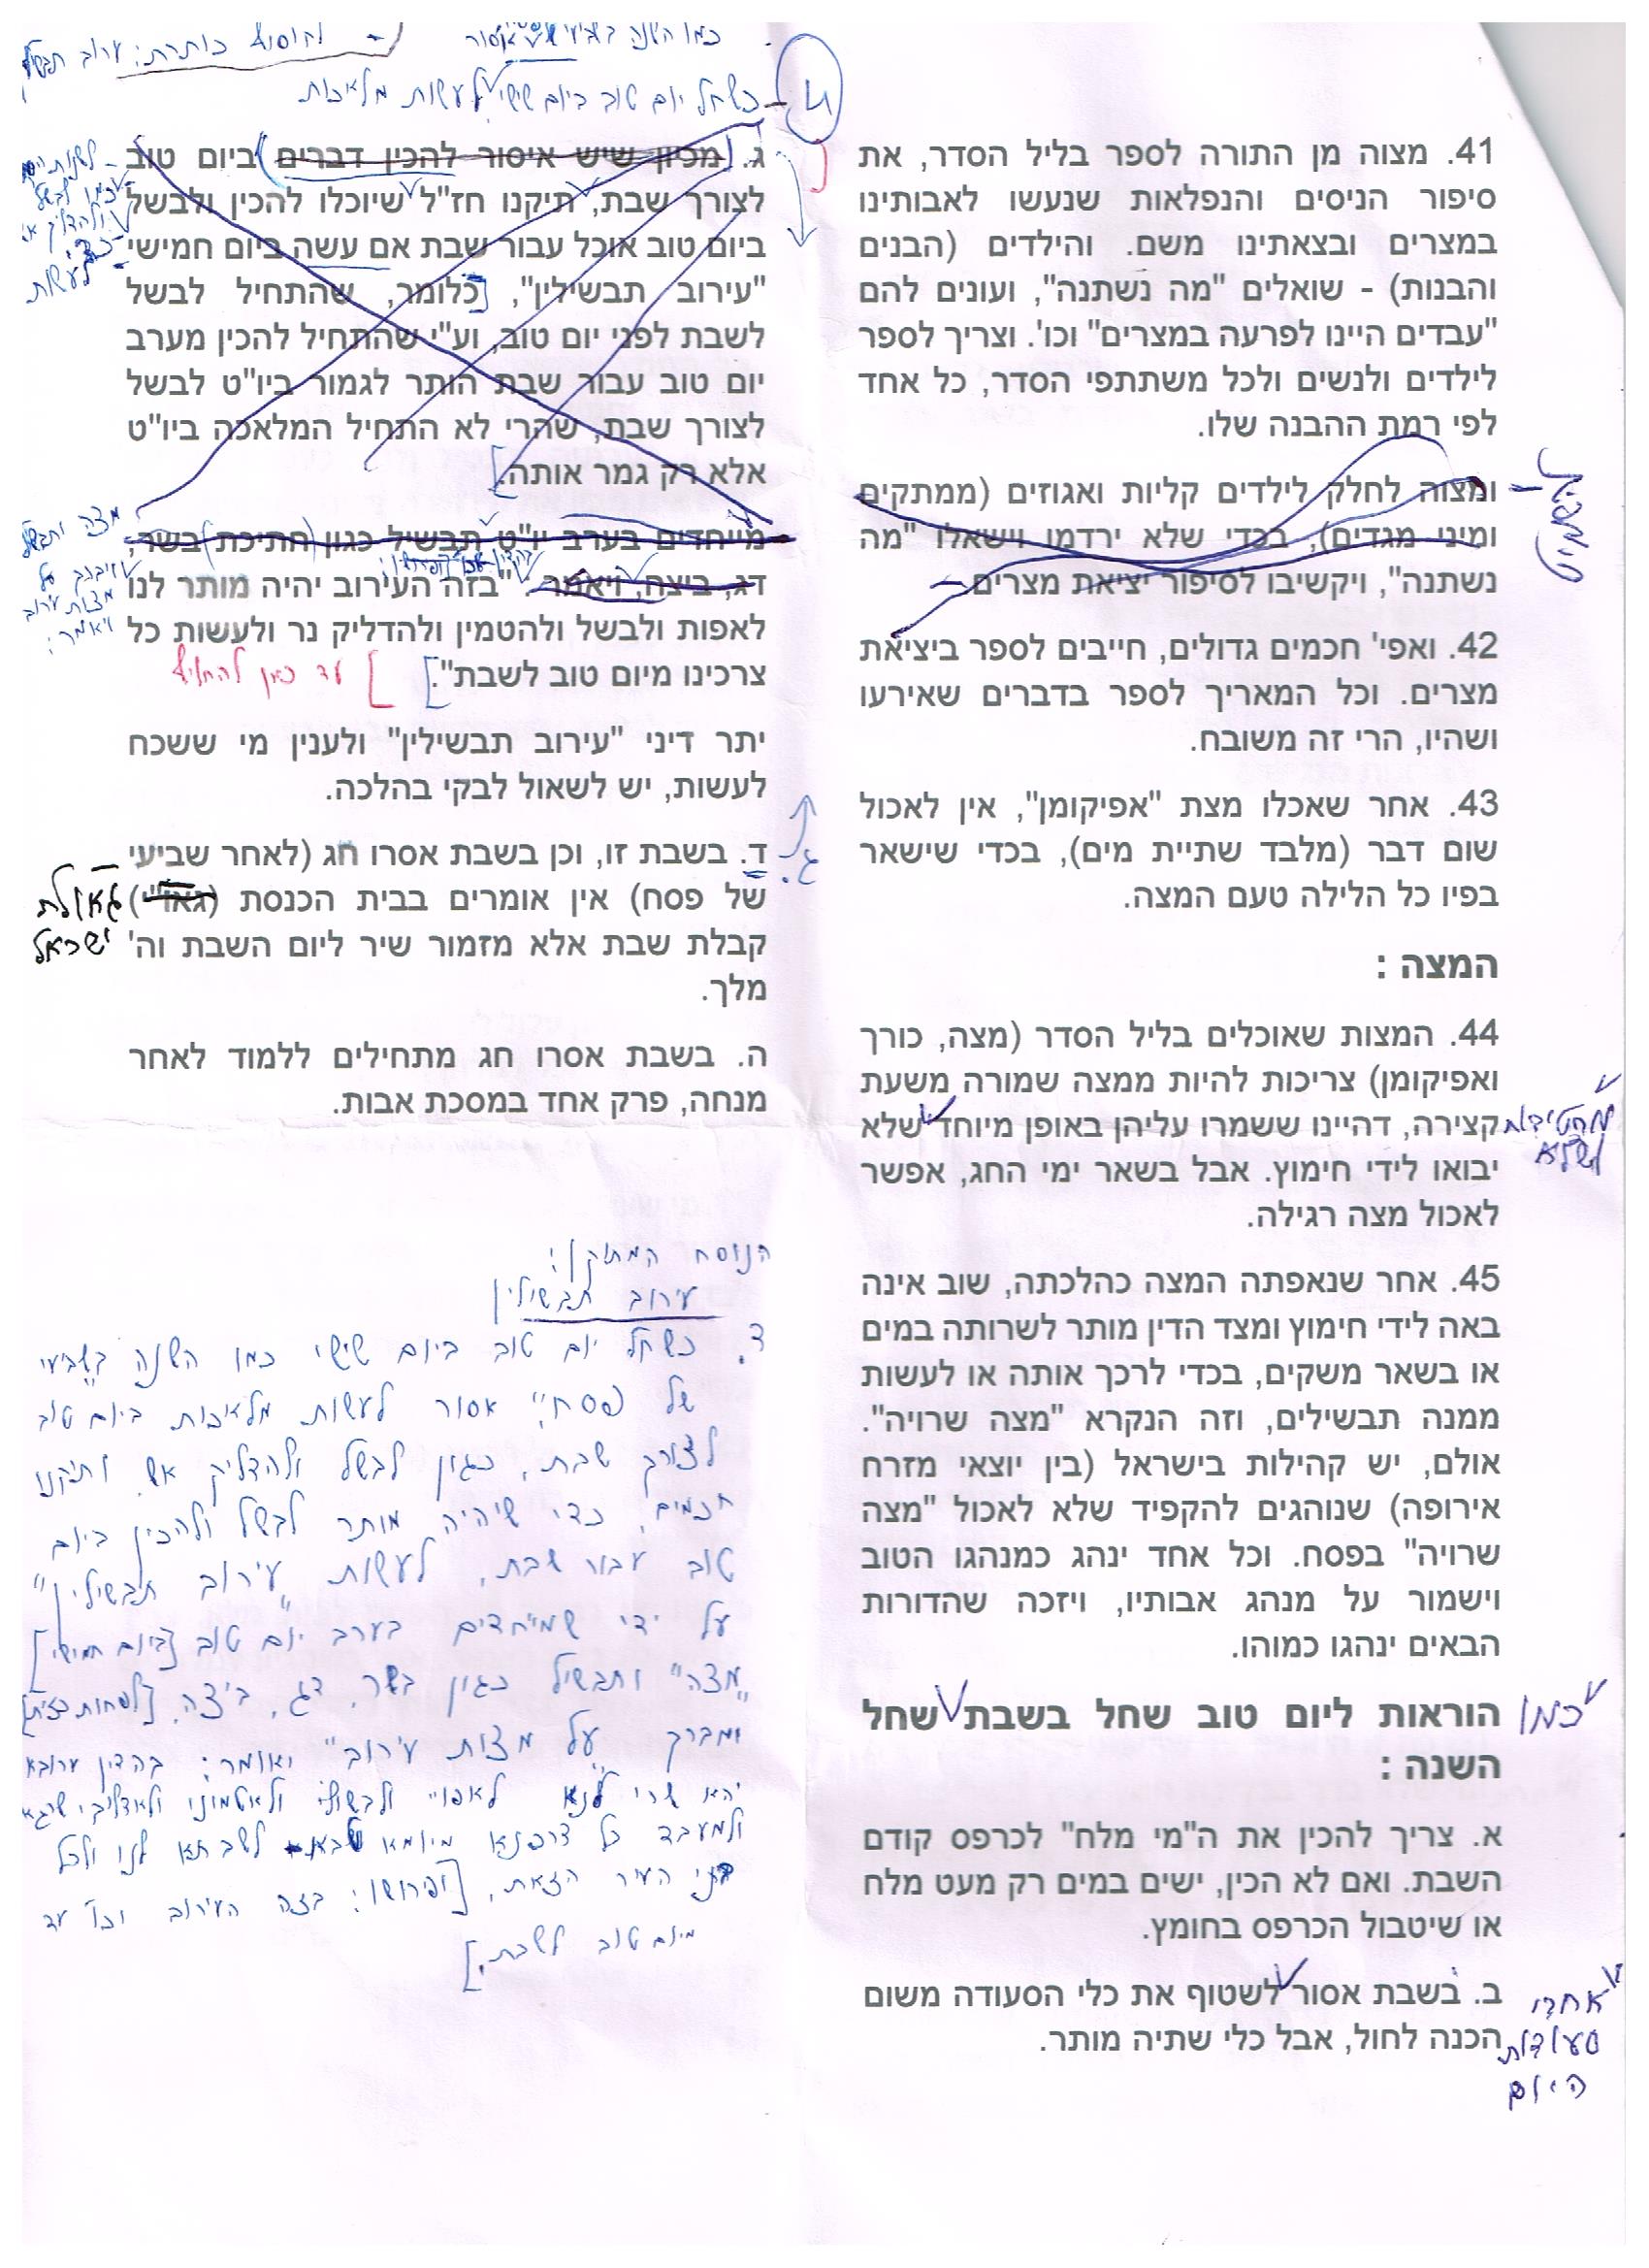 41. מצוה מן התורה לספר בליל הסדר, את
סיפור הניסים והנפלאות שנעשו לאבותינו
במצרים ובצאתינו משם. והילדים (הבנים
והבנות) - שואלים "מה נשתנה", ועונים להם
"עבדים היינו לפרעה במצרים" וכו'. וצריך לספר
לילדים ולנשים ולכל משתתפי הסדר, כל אחד
לפי רמת ההבנה שלו.
ומצוה לחלק לילדים קליות ואגוזים (ממתקים
ומיני מגדים), בכדי שלא ירדמו וישאלו "מה
נשתנה", ויקשיבו לסיפור יציאת מצרים.
42. ואפי' חכמים גדולים, חייבים לספר ביציאת
מצרים. וכל המאריך לספר בדברים שאירעו
ושהיו, הרי זה משובח.
43. אחר שאכלו מצת "אפיקומן", אין לאכול
שום דבר (מלבד שתיית מים), בכדי שישאר
בפיו כל הלילה טעם המצה.
המצה :
44. המצות שאוכלים בליל הסדר (מצה, כורך
ואפיקומן) צריכות להיות ממצה שמורה משעת
קצירה, דהיינו ששמרו עליהן באופן מיוחד שלא
יבואו לידי חימוץ. אבל בשאר ימי החג, אפשר
לאכול מצה רגילה.
45. אחר שנאפתה המצה כהלכתה, שוב אינה
באה לידי חימוץ ומצד הדין מותר לשרותה במים
או בשאר משקים, בכדי לרכך אותה או לעשות
ממנה תבשילים, וזה הנקרא "מצה שרויה".
אולם, יש קהילות בישראל (בין יוצאי מזרח
אירופה) שנוהגים להקפיד שלא לאכול "מצה
שרויה" בפסח. וכל אחד ינהג כמנהגו הטוב
וישמור על מנהג אבותיו, ויזכה שהדורות
הבאים ינהגו כמוהו.
כמו
הוראות ליום טוב שחל בשבת שחל
השנה :
א. צריך להכין את ה"מי מלח" לכרפס קודם
השבת. ואם לא הכין, ישים במים רק מעט מלח
או שיטבול הכרפס בחומץ.
ב. בשבת אסור לשטוף את כלי הסעודה משום
הכנה לחול, אבל כלי שתיה מותר.
אחרי
סעודת
היום
כמו השנה בשביעי אסור
להוסיף כותרת: ערוב תבשיל
כשחל יום טוב ביום שישי לעשות מלאכות
ג. (מכיון שיש איסור להכין דברים) ביום טוב
לצורך שבת, תיקנו חז"ל שיוכלו להכין ולבשל
ביום טוב אוכל עבור שבת אם עשה ביום חמישי
"עירוב תבשילין", [כלומר, שהתחיל לבשל
לשבת לפני יום טוב, וע"י שהתחיל להכין מערב
יום טוב עבור שבת הותר לגמור ביו"ט לבשל
לצורך שבת, שהרי לא התחיל המלאכה ביו"ט
אלא רק גמר אותה.]
מייחדים בערב יו"ט תבשיל כגון (חתיכת) בשר,
דג, ביצה, ויאמר : "בזה העירוב יהיה מותר לנו
לאפות ולבשל ולהטמין ולהדליק נר ולעשות כל
צרכינו מיום טוב לשבת".]
עד כאן להחליף
יתר דיני "עירוב תבשילין" ולענין מי ששכח
לעשות, יש לשאול לבקי בהלכה.
ג.
ד. בשבת זו, וכן בשבת אסרו חג (לאחר שביעי
של פסח) אין אומרים בבית הכנסת (גאו"י)
קבלת שבת אלא מזמור שיר ליום השבת וה'
מלך.
גאולת
ישראל
ה. בשבת אסרו חג מתחילים ללמוד לאחר
מנחה, פרק אחד במסכת אבות.
לעשות
מצה ותבשיל
ויברך על
מצות ערוב
ויאמר:
הנוסח המתוקן:
עירוב תבשילין
ד. כשחל יום טוב ביום שישי כמו השנה בשביעי
של פסח" אסור לעשות מלאכות ביום טוב
לצורך שבת, כגון לבשל ולהדליק אש. ותיקנו
חכמים, כדי שיהיה מותר לבשל ולהכין ביום
טוב עבור שבת, לעשות "עירוב תבשילין"
על ידי שמייחדים בערב יום טוב [ביום חמישי]
"מצה" ותבשיל כגון בשר, דג, ביצה, [לפחות כזית]
ומברך "על מצות עירוב" ואומר: בהדין ערובא
יהא שרי לנא לאפויי ולבשולי ולאטמוני ולאדלוקי שרגא
ולמעבד כל צרכנא מיומא טבא לשבתא לנו ולכל
בני העיר הזאת, [ופירושו: בזה העירוב וכו' עד
מיום טוב לשבת.]